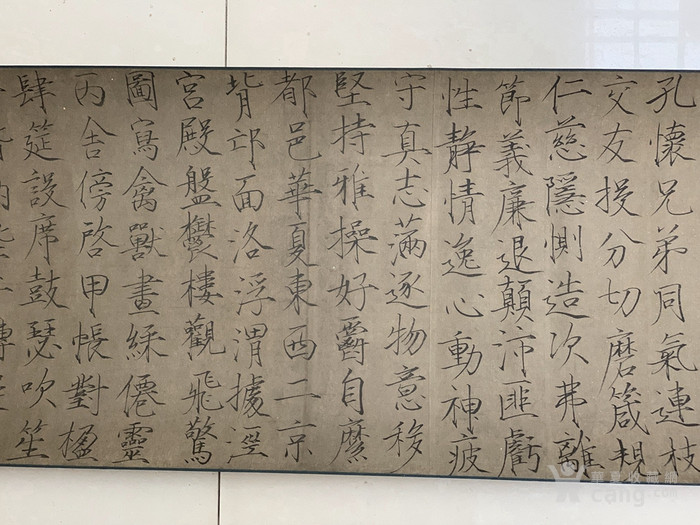 孔懷兄弟同氣連枝
交友投分切磨箴規
仁慈隱惻造次弗離
節義廉退顛沛匪虧
性靜情逸心動神疲
守真志滿逐物意移
堅持雅操好爵自縻
都邑華夏東西二京
背邙面洛浮渭據涇
宮殿盤欝樓觀飛驚
圖寫禽獸畫綵僊靈
丙舍傍啓甲帳對楹
肆筵設席鼓瑟吹笙
華夏收藏網
cang.com